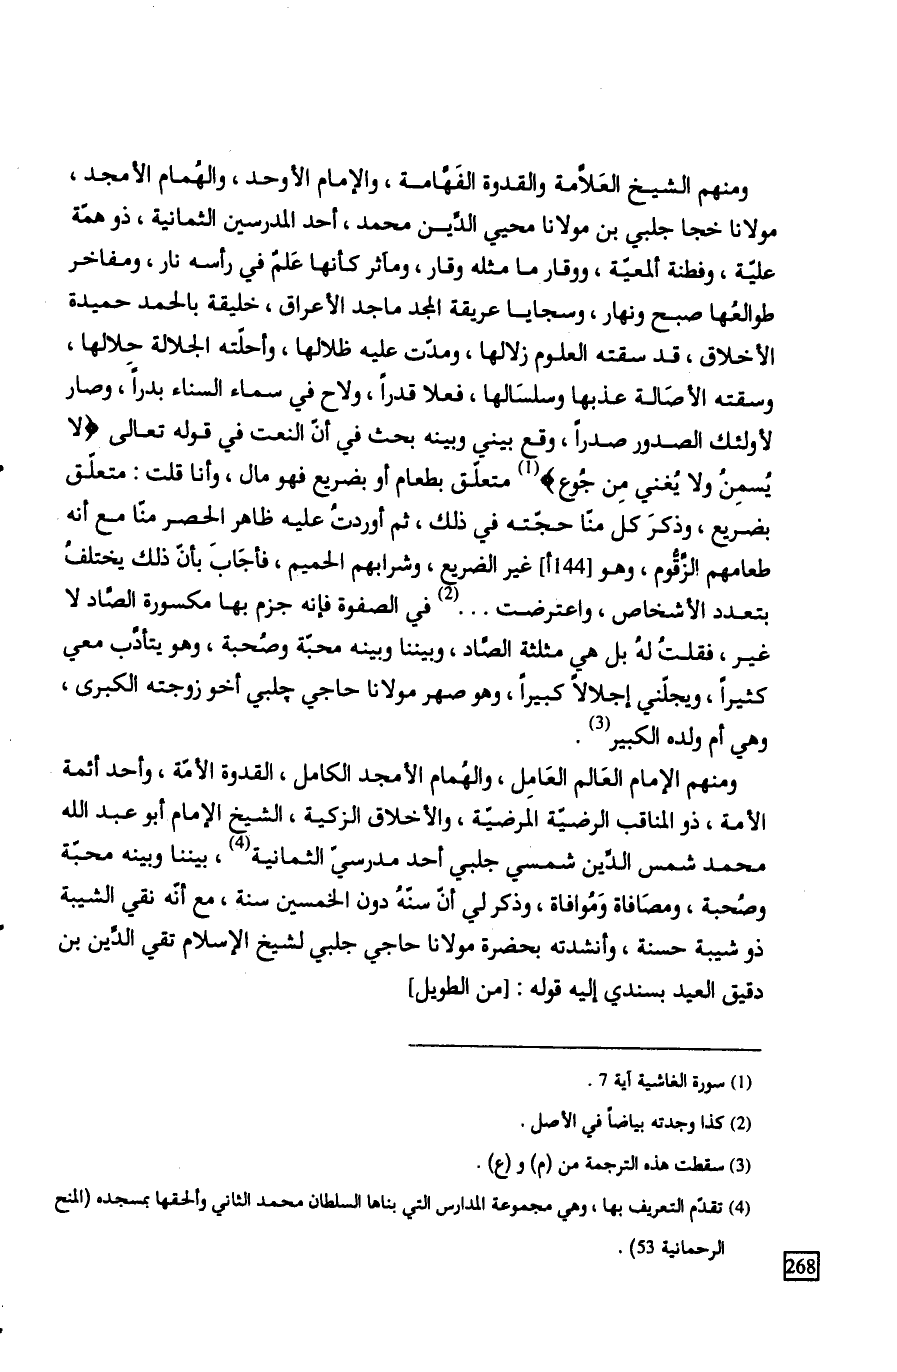 ومنهم الشيخ العَلاَّمة والقدوة الفَهَّامة ، والإمام الأوحد ، والهُمام الأمجد ،
مولانا خجا جلبي بن مولانا محيي الدَّين محمد ، أحد المدرسين الثمانية ، ذو همّة
عليّة ، وفطنة ألمعيّة ، ووقار ما مثله وقار ، ومآثر كأنها عَلمٌ في رأسه نار ، ومفاخر
طوالعُها صبح ونهار ، وسجايا عريقة المجد ماجد الأعراق ، خليقة بالحمد حميدة
الأخلاق ، قد سقته العلوم زلالها ، ومدّت عليه ظلالها ، وأحلّته الجلالة حِلالها ،
وسقته الأصَالة عذبها وسلسَالها ، فعلا قدراً ، ولاح في سماء السناء بدراً ، وصار
لأولئك الصدور صدراً ، وقع بيني وبينه بحث في أنّ النعت في قوله تعالى ﴿لا
يُسمِنُ ولا يُغني مِن جُوع﴾(1) متعلّق بطعام أو بضريع فهو مال ، وأنا قلت : متعلّق
بضريع ، وذكرَ كل منّا حجّته في ذلك ، ثم أوردتُ عليه ظاهر الحصر منّا مع أنه
طعامهم الزَّقُّوم ، وهو [144أ] غير الضريع ، وشرابهم الحميم ، فأجَابَ بأنّ ذلك يختلفُ
بتعدد الأشخاص ، واعترضت ...(2) في الصفوة فإنه جزم بها مكسورة الصَّاد لا
غير ، فقلتُ لهُ بل هي مثلثة الصَّاد ، وبيننا وبينه محبّة وصُحبة ، وهو يتأدَّب معي
كثيراً ، ويجلّني إجلالاً كبيراً ، وهو صهر مولانا حاجي چلبي أخو زوجته الكبرى ،
وهي أم ولده الكبير(3) .
ومنهم الإمام العَالم العَامِل ، والهُمام الأمجد الكامل ، القدوة الأمّة ، وأحد أئمة
الأمة ، ذو المناقب الرضيّة المرضيّة ، والأخلاق الزكية ، الشيخ الإمام أبو عبد الله
محمد شمس الدَّين شمسي جلبي أحد مدرسيّ الثمانية(4) ، بيننا وبينه محبّة
وصُحبة ، ومصَافاة وَمُوافاة ، وذكر لي أنّ سنّهُ دون الخمسين سنة ، مع أنّه نقي الشيبة
ذو شيبة حسنة ، وأنشدته بحضرة مولانا حاجي جلبي لشيخ الإسلام تقي الدَّين بن
دقيق العيد بسندي إليه قوله : [من الطويل]
(1) سورة الغاشية آية 7 .
(2) كذا وجدته بياضاً في الأصل .
(3) سقطت هذه الترجمة من (م) و (ع) .
(4) تقدّم التعريف بها ، وهي مجموعة المدارس التي بناها السلطان محمد الثاني وألحقها بمسجده (المنح
الرحمانية 53) .
268